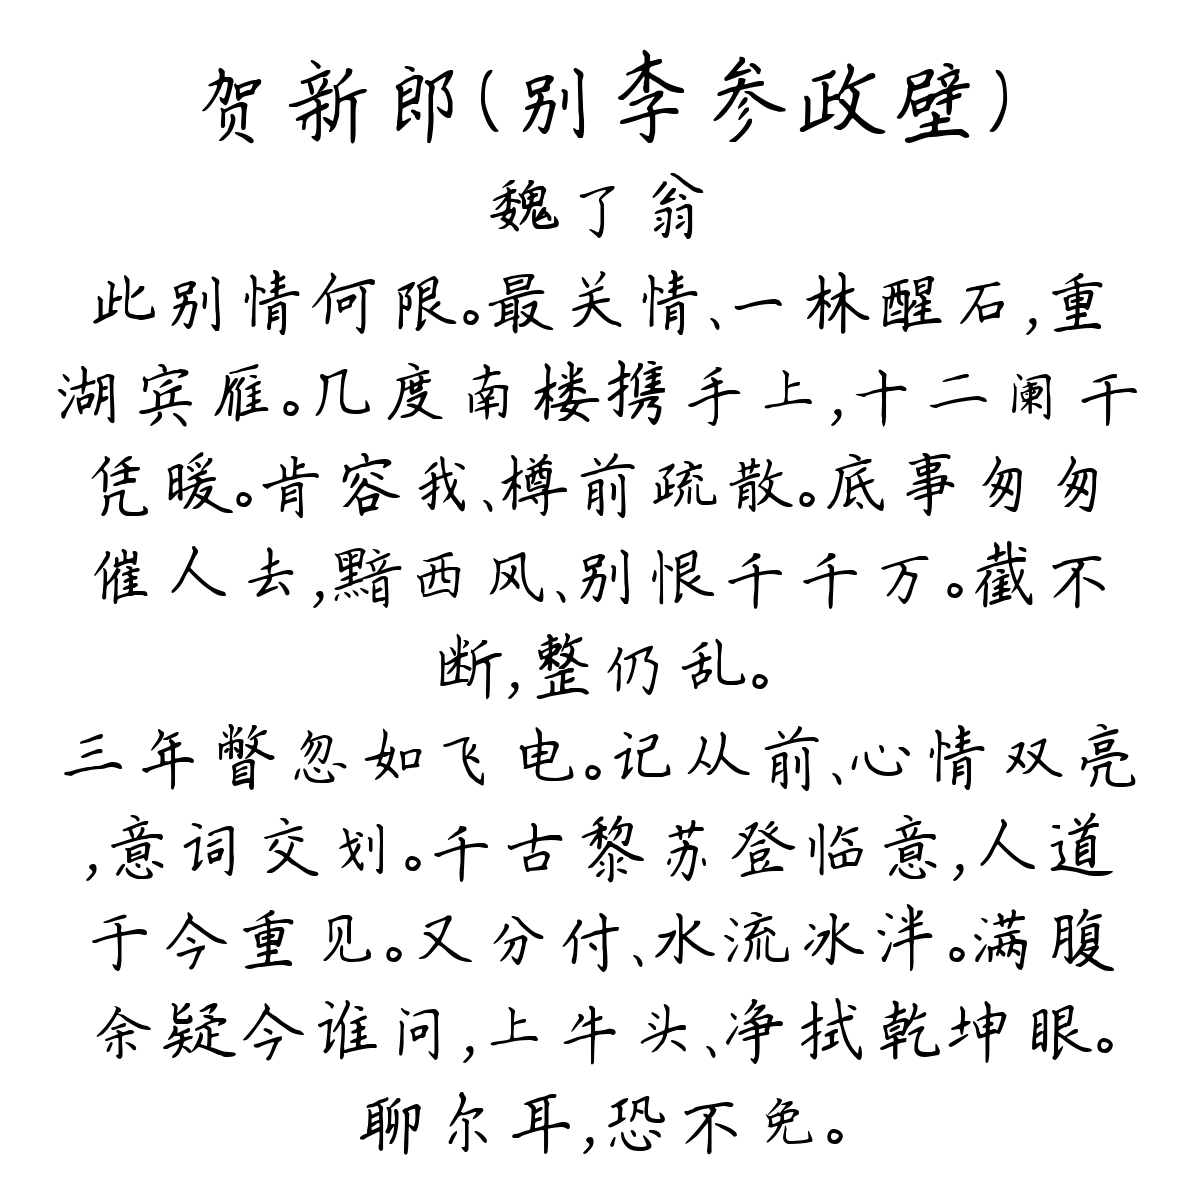 贺新郎(别李参政壁)
魏了翁
此别情何限。最关情、一林醒石,重
湖宾雁。几度南楼携手上,十二阑干
凭暖。肯容我、樽前疏散。底事匆匆
催人去,黯西风、别恨千千万。截不
断,整仍乱。
三年瞥忽如飞电。记从前、心情双亮
,意词交划。千古黎苏登临意,人道
于今重见。又分付、水流冰泮。满腹
余疑今谁问,上牛头、净拭乾坤眼。
聊尔耳,恐不免。